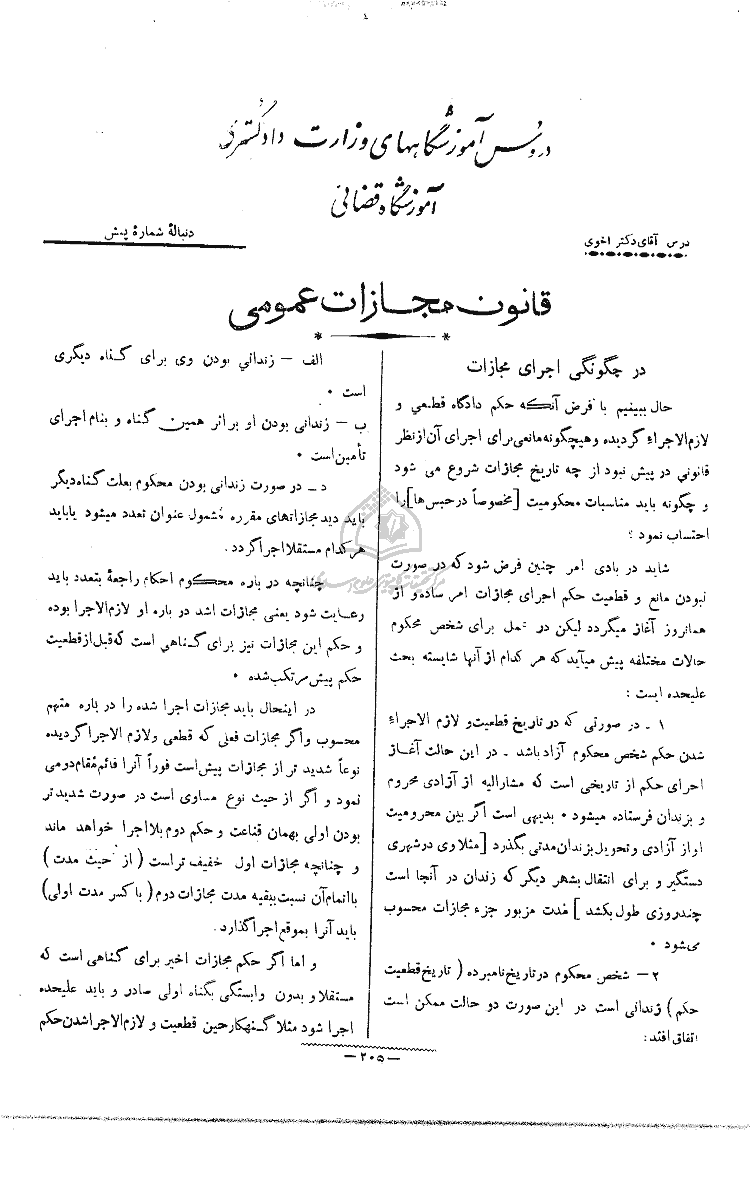 دروس آموزشگاههای وزارت دادگستری
آموزشگاه قضائی
درس آقای دکتر اخوی
دنبالهٔ شمارهٔ پیش
قانون مجازات عمومی
در چگونگی اجرای مجازات
حال ببینیم با فرض آنکه حکم دادگاه قطعی و
لازم‌الاجراء گردیده و هیچگونه مانعی برای اجرای آن از نظر
قانونی در پیش نبود از چه تاریخ مجازات شروع می شود
و چگونه باید مناسبات محکومیت [مخصوصاً در حبس‌ها] را
احتساب نمود ؟
شاید در بادی امر چنین فرض شود که در صورت
نبودن مانع و قطعیت حکم اجرای مجازات امر ساده و از
همانروز آغاز میگردد لیکن در عمل برای شخص محکوم
حالات مختلفه پیش میآید که هر کدام از آنها شایسته بحث
علیحده ایست :
۱ ـ در صورتی که در تاریخ قطعیت و لازم الاجراء
شدن حکم شخص محکوم آزاد باشد ـ در این حالت آغاز
اجرای حکم از تاریخی است که مشارالیه از آزادی محروم
و بزندان فرستاده میشود ۰ بدیهی است اگر بین محرومیت
او از آزادی و تحویل بزندان مدتی بگذرد [مثلا وی در شهری
دستگیر و برای انتقال بشهر دیگر که زندان در آنجا است
چندروزی طول بکشد ] مدت مزبور جزء مجازات محسوب
می‌شود ۰
۲ – شخص محکوم در تاریخ نامبرده ( تاریخ قطعیت
حکم ) زندانی است در این صورت دو حالت ممکن است
اتفاق افتد:
الف – زندانی بودن وی برای گناه دیگری
است ۰
ب – زندانی بودن او بر اثر همین گناه و بنام اجرای
تأمین است ۰
د ـ در صورت زندانی بودن محکوم بعلت گناه دیگر
باید دید مجازاتهای مقرره مشمول عنوان تعدد میشود یا باید
هر کدام مستقلا اجرا گردد.
چنانچه در باره محکوم احکام راجعهٔ بتعدد باید
رعایت شود یعنی مجازات اشد در باره او لازم‌الاجرا بوده
و حکم این مجازات نیز برای گناهی است که قبل از قطعیت
حکم پیش مرتکب شده ۰
در اینحال باید مجازات اجرا شده را در باره متهم
محسوب و اگر مجازات فعلی که قطعی و لازم الاجرا گردیده
نوعاً شدید تر از مجازات پیش است فوراً آنرا قائم مقام دومی
نمود و اگر از حیث نوع مساوی است در صورت شدید تر
بودن اولی بهمان قناعت و حکم دوم بلااجرا خواهد ماند
و چنانچه مجازات اول خفیف تر است ( از حیث مدت )
با اتمام آن نسبت ببقیه مدت مجازات دوم ( با کسر مدت اولی )
باید آنرا بموقع اجرا گذارد.
و اما اگر حکم مجازات اخیر برای گناهی است که
مستقلا و بدون وابستگی بگناه اولی صادر و باید علیحده
اجرا شود مثلا گنهکار حین قطعیت و لازم الاجرا شدن حکم
– ۲۰۵ –